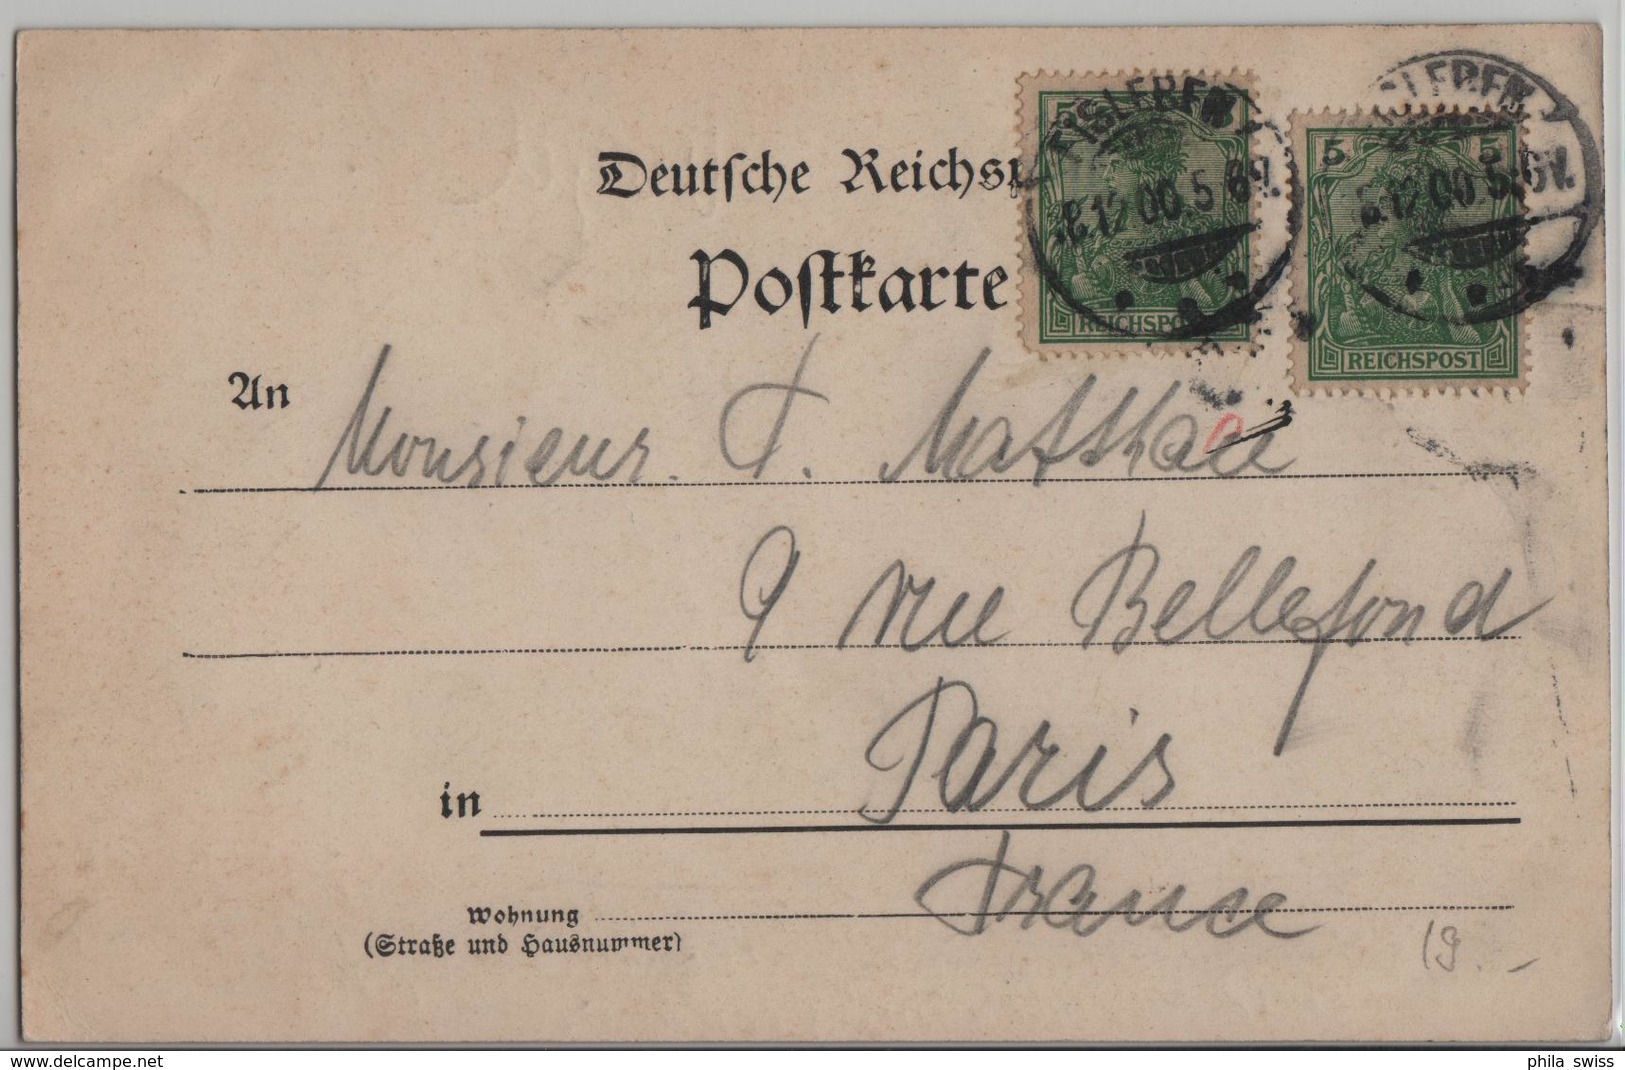 Deutsche Reichsp
Postkarte
EISLEBEN
6.12.00.5-6N.
5
REICHSPOST
EISLEBEN
6.12.00.5-6N.
5 5
REICHSPOST
An Monsieur F.
9 rue Bellefond
in Paris
France
Wohnung
(Straße und Hausnummer)
19.-
www.delcampe.net
phila_swiss